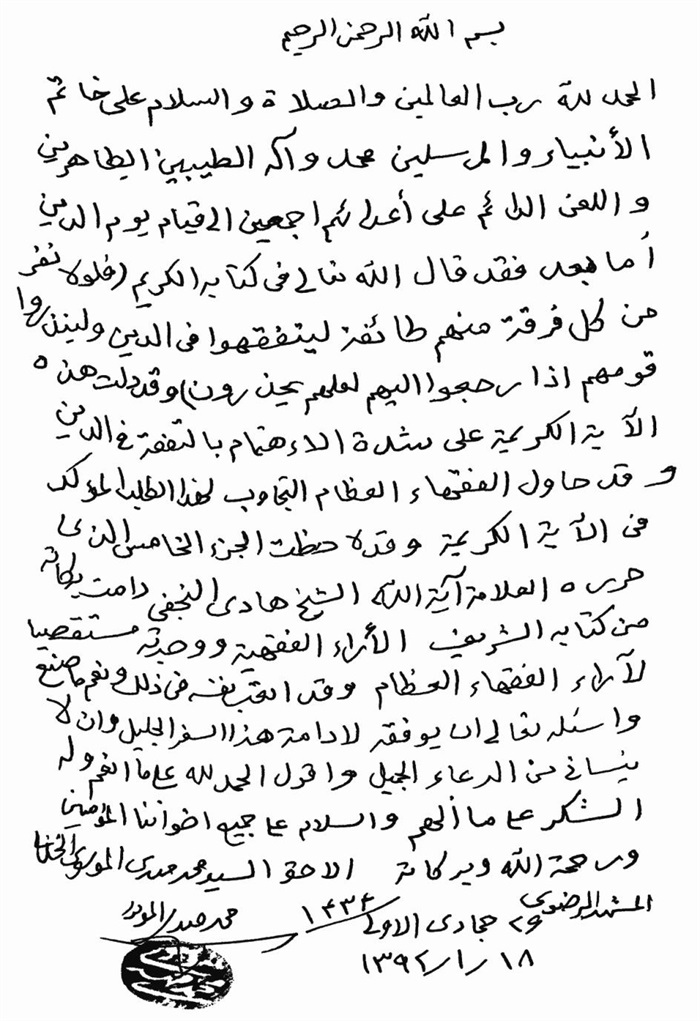 بسم الله الرحمن الرحيم
الحمد لله رب العالمين والصلاة والسلام على خاتم
الأنبياء والمرسلين محمد وآله الطيبين الطاهرين
واللعن الدائم على أعدائهم اجمعين الى قيام يوم الدين
أما بعد فقد قال الله تعالى في كتابه الكريم (فلولا نفر
من كل فرقة منهم طائفة ليتفقهوا في الدين ولينذروا
قومهم اذا رجعوا اليهم لعلهم يحذرون) وقد دلت هذه
الآية الكريمة على شدة الاهتمام بالتفقه في الدين
و قد حاول الفقهاء العظام التجاوب لهذا الطلب المؤكد
في الآية الكريمة وقد لاحظت الجزء الخامس الذي
حرره العلامة آية الله الشيخ هادي النجفي دامت بركاته
من كتابه الشريف الأراء الفقهية ووجدته مستقصيا
لآراء الفقهاء العظام وقد اتعب نفسه في ذلك ونعم ما صنيع
واسئله تعالى ان يوفقه لادامة هذا السفر الجليل وان لا
ينساني من الدعاء الجميل واقول الحمد لله على ما انعم وله
الشكر على ما ألهم والسلام على جميع اخواننا المؤمنين
ورحمة الله وبركاته الاحقر السيد محمد مهدي الموسوي الخلخالي
المشهد الرضوي
٢٩ جمادى الاولى ١٤٣٤
١٨ ر ار ١٣٩٢
محمد مهدي الموسوي